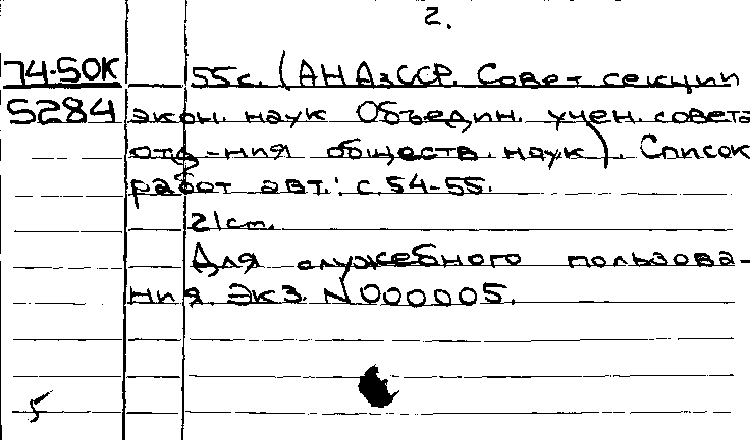 2.
74-50К 55с. (АН АзССР. Совет секции
5284 экон. наук Объедин. учен. совета
отд-ния обществ. наук). Список
работ авт.: с. 54-55.
21см.
Для служебного пользова-
ния. Экз. N000005.
5